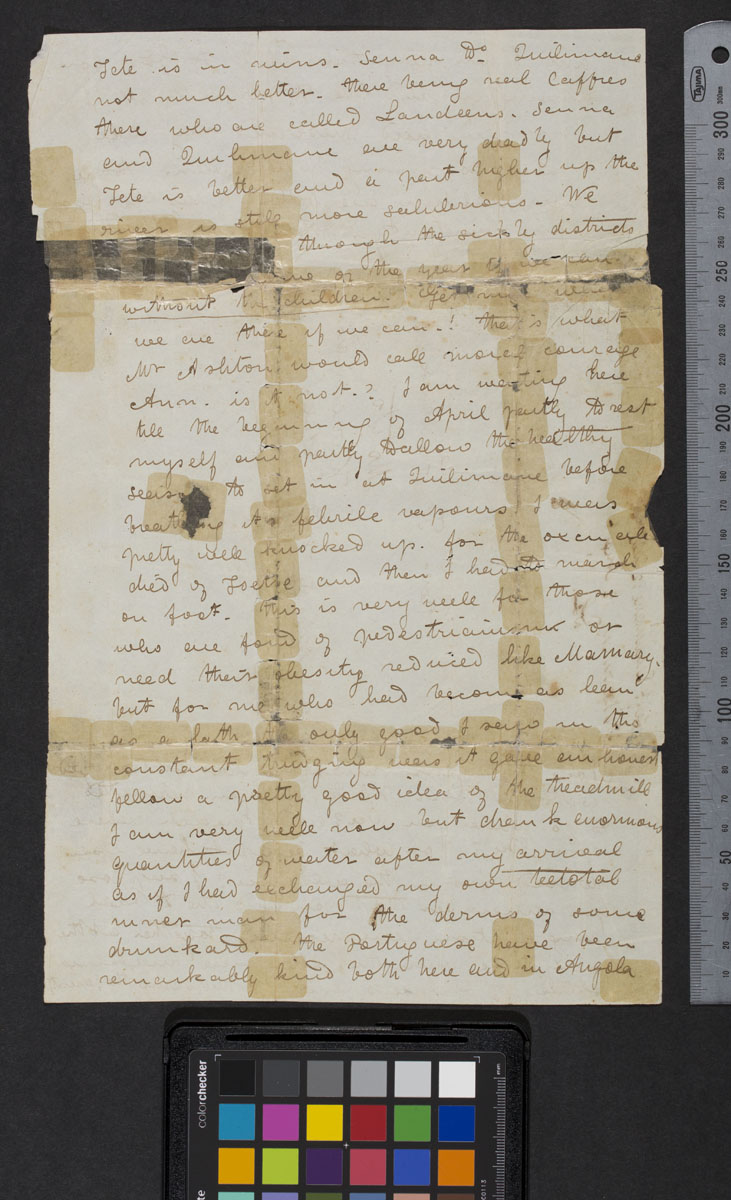 Tete is in ruins. Senna Do. Quilimane
not much better. there being real Caffres
there who are called Landeens. Senna
and Quilimane are very deadly but
Tete is better and a part higher up the
river is still more salubrious. We
through the sickly districts
time of the year if we can
without the children.
we are there if we can.! that is what
Mr Ashton would call moral courage
Ann. is it not.? I am waiting here
till the beginning of April partly to rest
myself and partly to allow the healthy
season to set in at Quilimane before
breathing its febrile vapours I was
pretty well knocked up. for the oxen all
died of Tsetse and then I had to march
on foot. this is very well for those
who are fond of pedestrianism or
need their obesity reduced like Mamary.
but for me who had become as lean
as a lath the only good I saw in the
constant trudging was it gave an honest
fellow a pretty good idea of the treadmill
I am very well now but drank enormous
quantities of water after my arrival
as if I had exchanged my own teetotal
inner man for the dermis of some
drunkard. the Portuguese have been
remarkably kind both here and in Angola